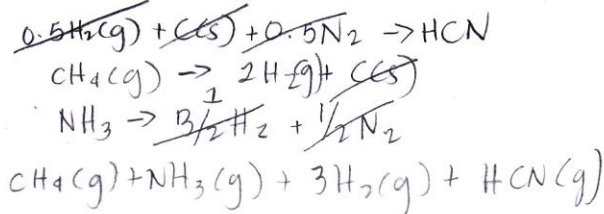 0.5H₂(g) + C(s) + 0.5N₂ → HCN
CH₄(g) → 2H₂(g) + C(s)
NH₃ → 3/2 H₂ + 1/2 N₂
CH₄(g) + NH₃(g) + 3H₂(g) + HCN(g)